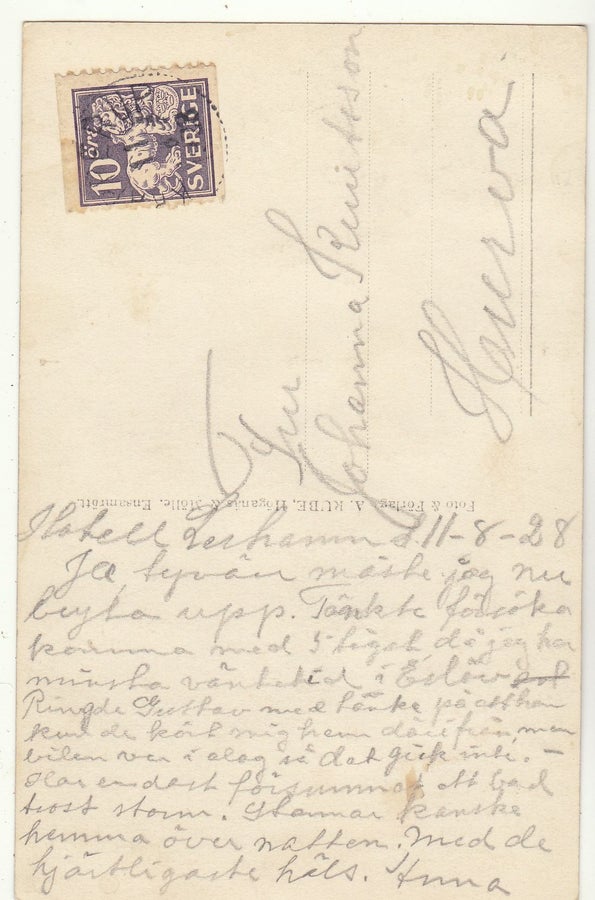 10 öre
SVERIGE
Fru
Johanna Knutsson
Hurva
Foto & Förlag: A. KUBE, Höganäs & Mölle. Ensamrätt.
Hotell Lerhamn d. 11-8-28
Ja, tyvärr måste jag nu
bryta upp. Tänkte försöka
komma med 5 tåget då jag har
minsta väntetid i Eslöv
Ringde Gustav med tanke på att han
kunde kört mig hem därifrån, men
bilen var i olag så det gick inte. —
Har endast försummat ett bad
trots storm. Stannar kanske
hemma över natten. Med de
hjärtligaste häls. Anna